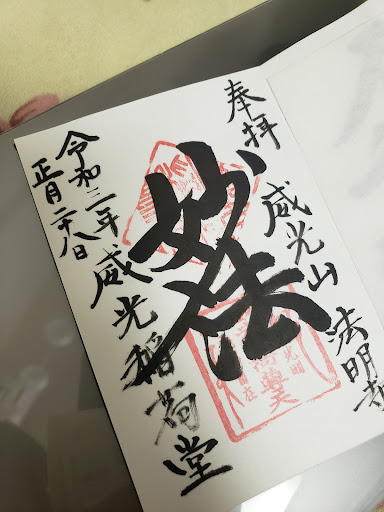 奉拝 威光山 法明寺
妙法
威光稲荷堂
令和三年
正月二十八日